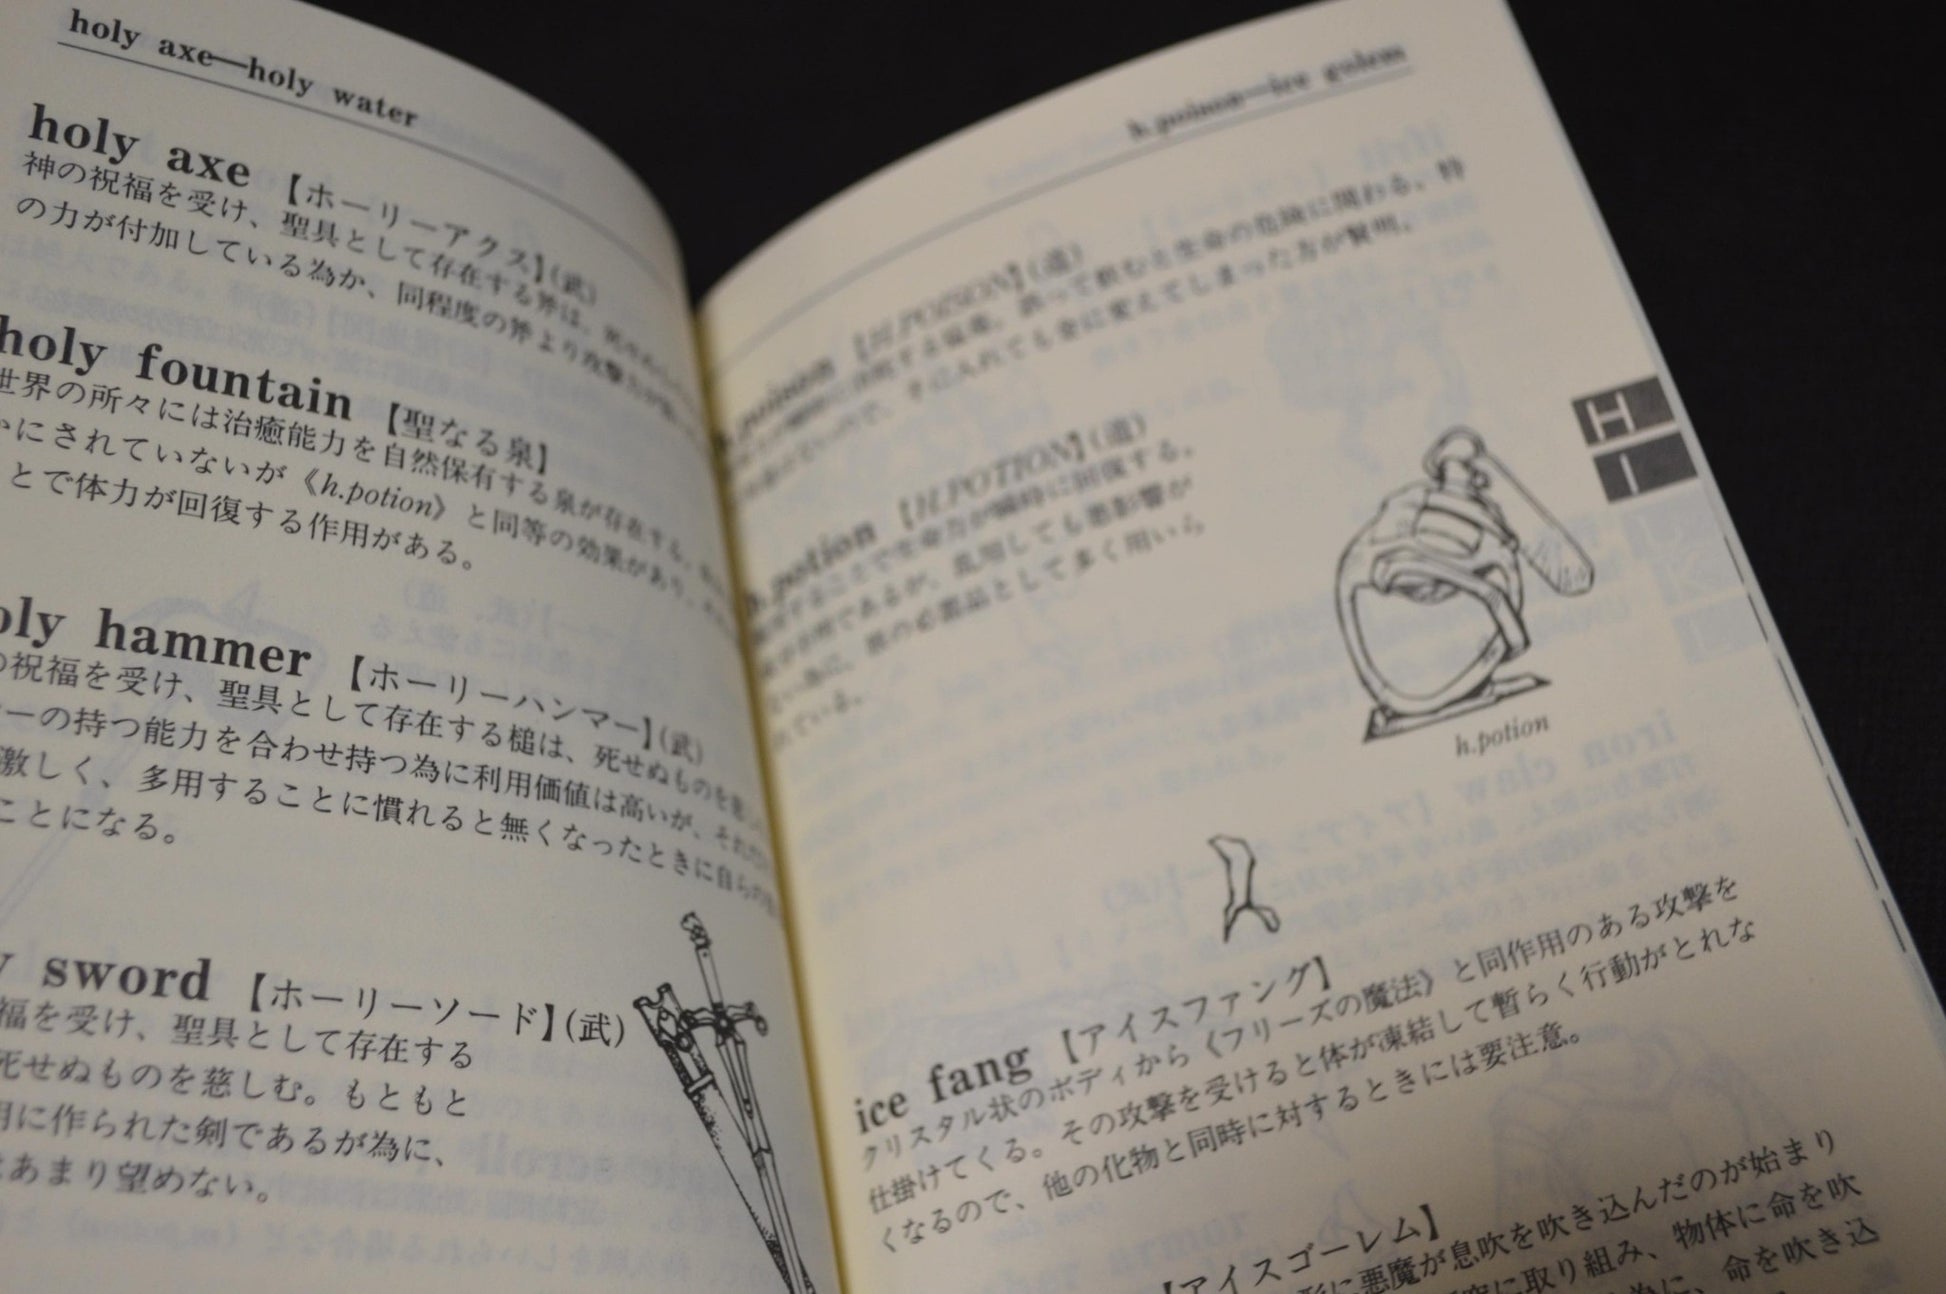 holy axe—holy water
holy axe 【ホーリーアクス】(武)
神の祝福を受け、聖具として存在する斧は、
の力が付加している為か、同程度の斧より攻撃力が
holy fountain 【聖なる泉】
世界の所々には治癒能力を自然保有する泉が存在する。
かにされていないが《h.potion》と同等の効果があり、
とで体力が回復する作用がある。
oly hammer 【ホーリーハンマー】(武)
の祝福を受け、聖具として存在する槌は、死せぬものを
ーの持つ能力を合わせ持つ為に利用価値は高いが、それだけ
激しく、多用することに慣れると無くなったときに自らの
ことになる。
y sword 【ホーリーソード】(武)
福を受け、聖具として存在する
死せぬものを慈しむ。もともと
用に作られた剣であるが為に、
はあまり望めない。
h.poison—ice golem
poison 【H.POISON】(道)
に治癒する猛毒。誤って飲むと生命の危険に関わる。特
ので、手に入れても金に変えてしまった方が賢明。
h.potion 【H.POTION】(道)
することで生命力が瞬時に回復する。
であるが、乱用しても悪影響が
ない為に、旅の必需品として多く用いら
れている。
h.potion
H
I
ice fang 【アイスファング】
クリスタル状のボディから《フリーズの魔法》と同作用のある攻撃を
仕掛けてくる。その攻撃を受けると体が凍結して暫らく行動がとれな
くなるので、他の化物と同時に対するときには要注意。
【アイスゴーレム】
形に悪魔が息吹を吹き込んだのが始まり
に取り組み、物体に命を吹
為に、命を吹き込